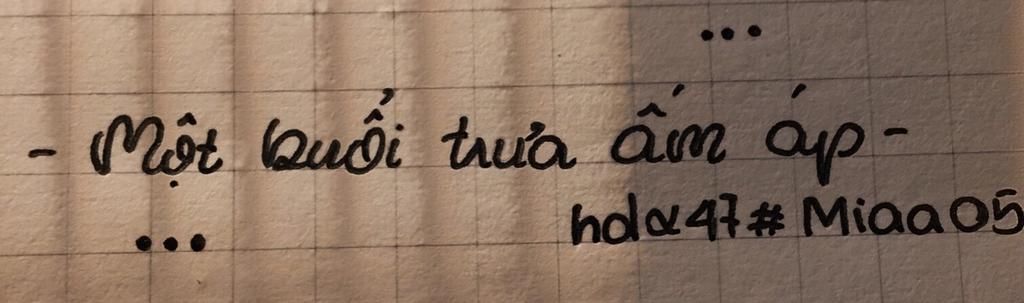 ...
- Một buổi trưa ấm áp -
hdα47# Miaa05
...